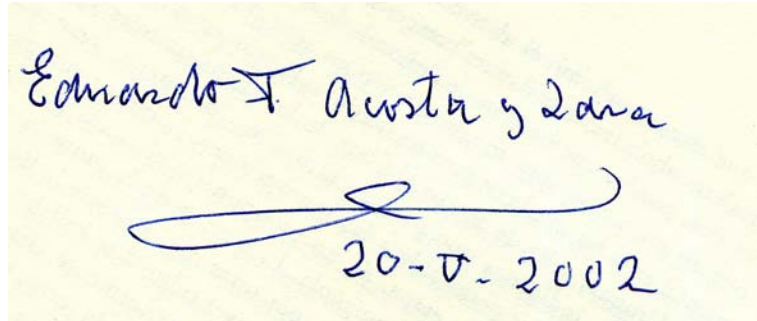 Eduardo T. Acosta y Lara
20-V-2002